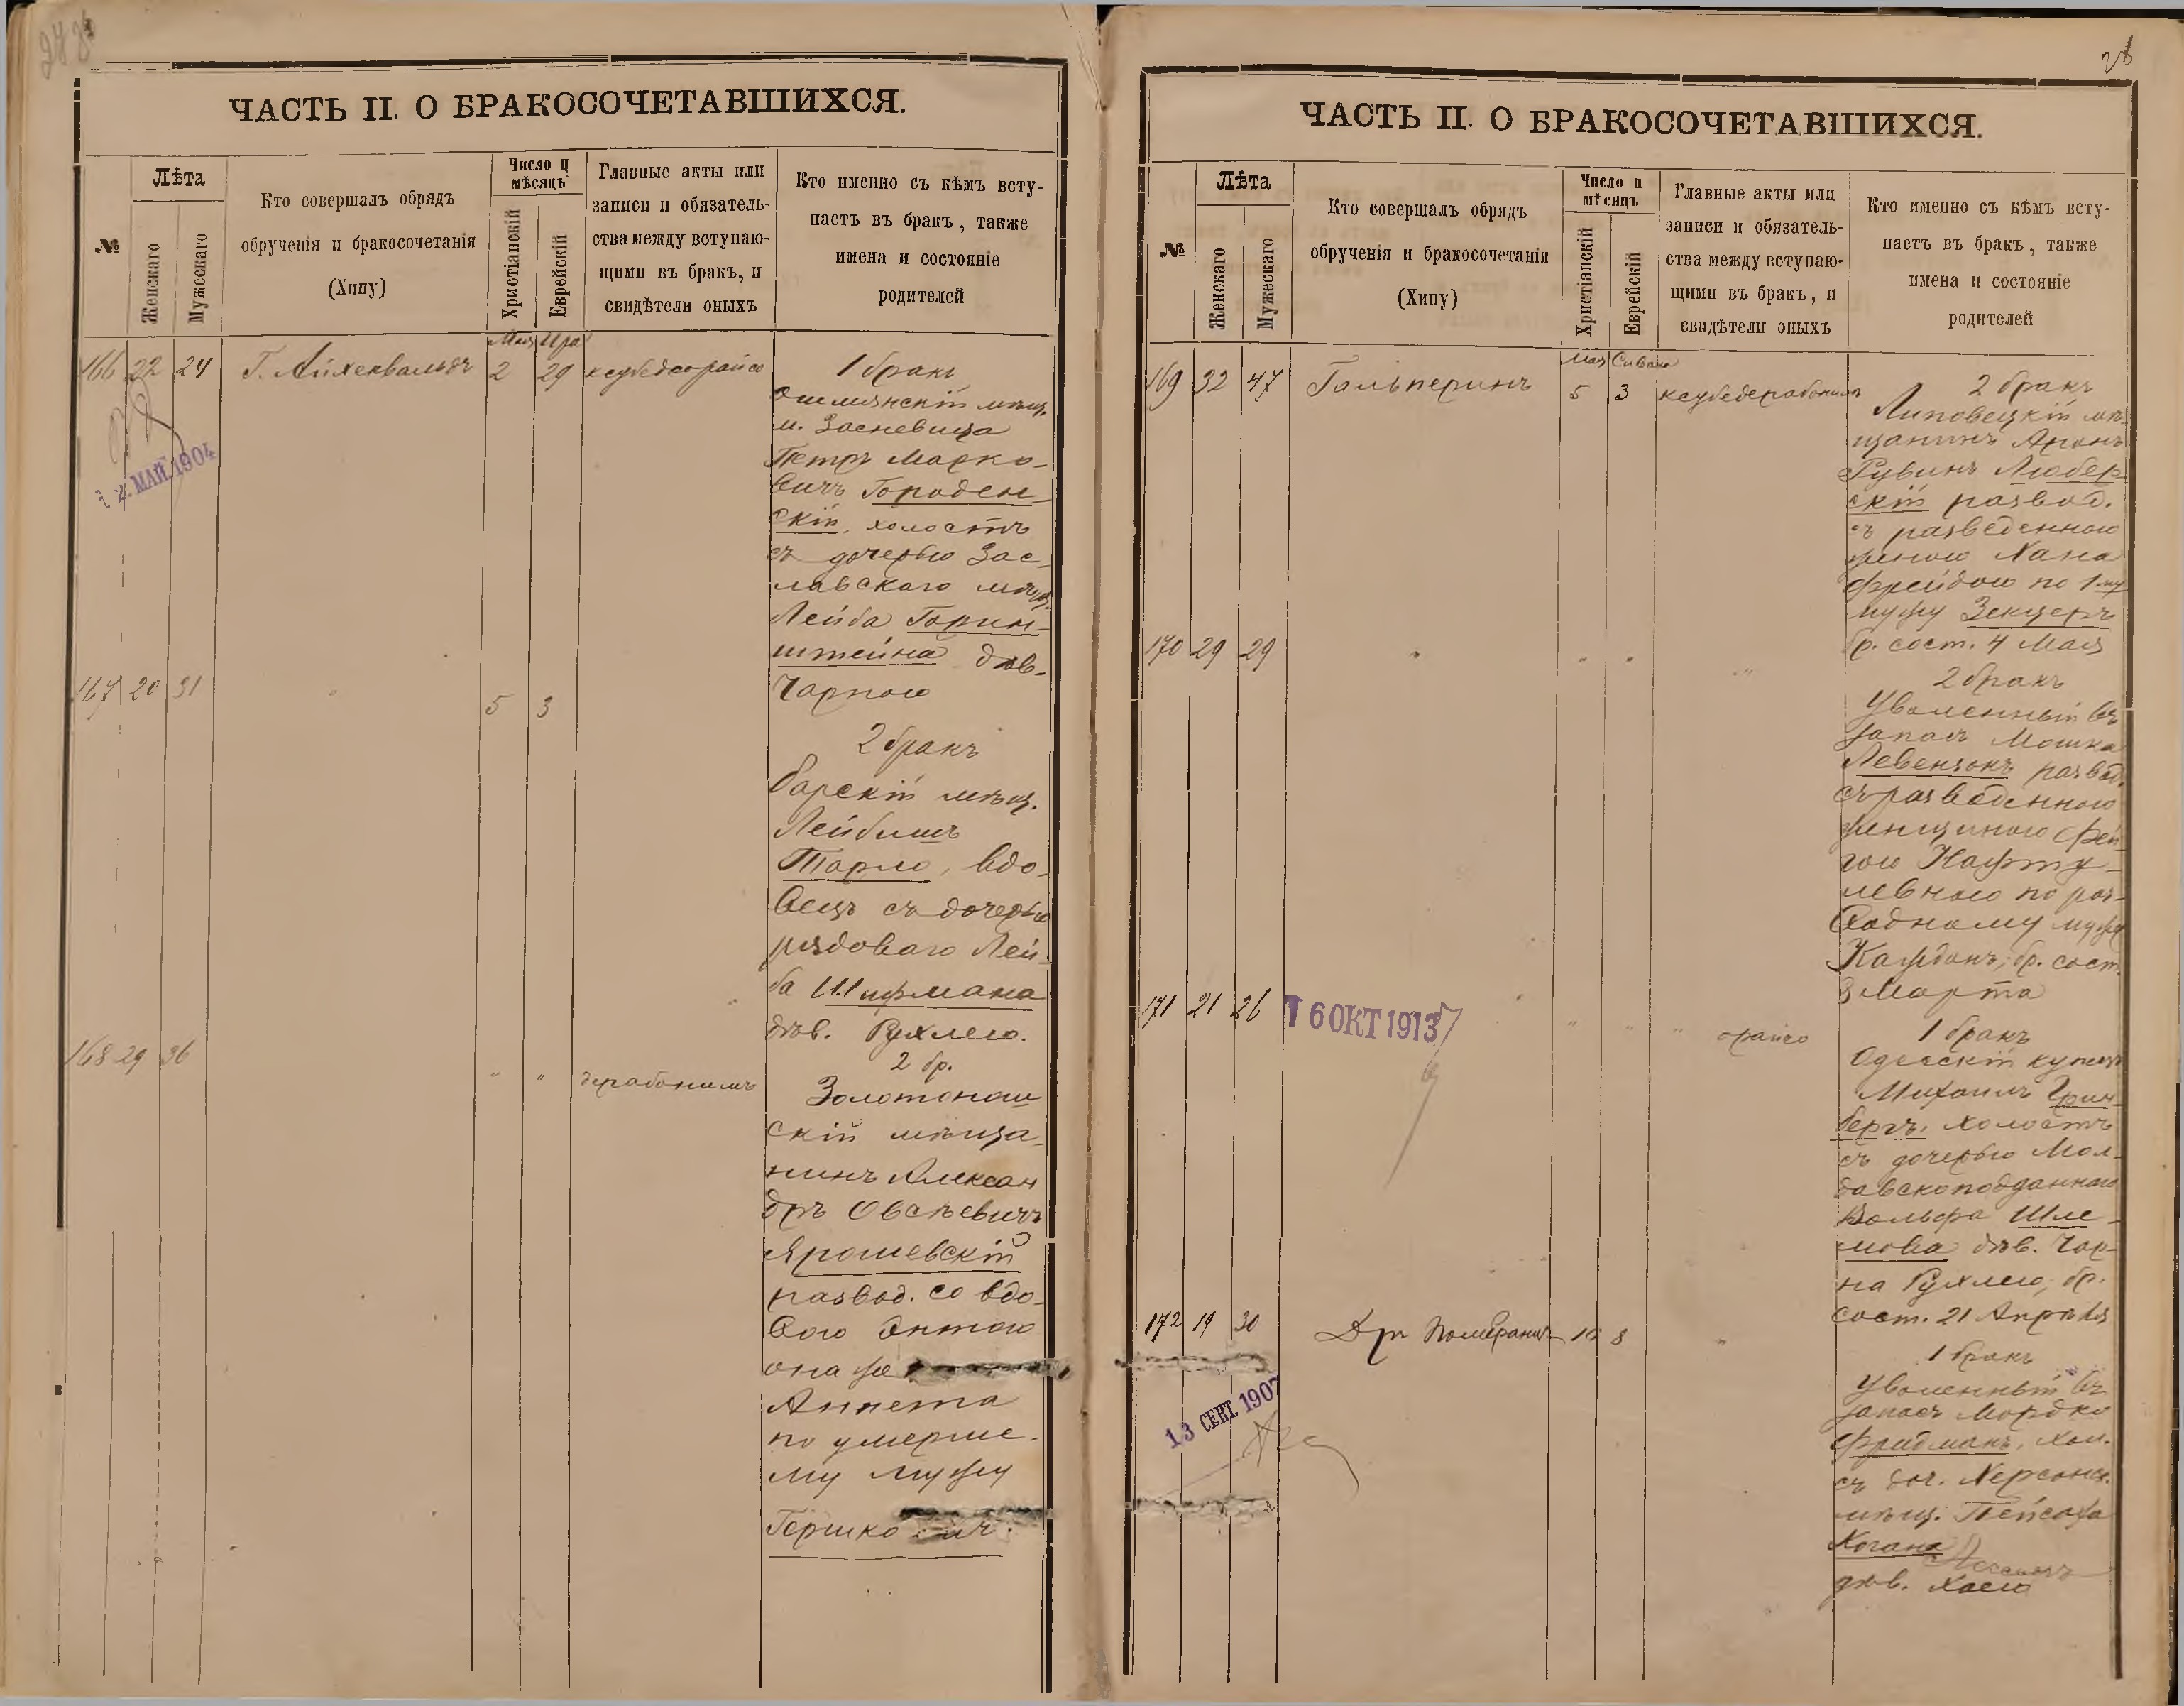 28
ЧАСТЬ II. О БРАКОСОЧЕТАВШИХСЯ.
№
Лѣта
Женскаго
Мужескаго
Кто совершалъ обрядъ
обрученія и бракосочетанія
(Хипу)
Число и
мѣсяцъ
Христіанскій
Еврейскій
Главные акты или
записи и обязатель-
ства между вступаю-
щими въ бракъ, и
свидѣтели оныхъ
Кто именно съ кѣмъ всту-
паетъ въ бракъ, также
имена и состояніе
родителей
166 22 24 Г. Айхенвальдъ 2 29
МАЙ. 1904
1 бракъ
Ошмянскій мѣщ.
м. Засневица
Петръ Марко-
вичъ Городен-
скій, холостъ
съ дочерью Зас-
лавскаго мѣщ.
Лейба Горин-
штейна дѣв.
Чарною
167 20 31 5 3
2 бракъ
барскій мѣщ.
Лейбишъ
Тарло, вдо-
вецъ съ дочерью
рядоваго Лей-
ба Шифмана
дѣв. Рухлею.
168 29 36 " " дерабонимъ
2 бр.
Золотонош
скій мѣща-
нинъ Алексан
дръ Овсѣевичъ
Ярошевскій
развод. со вдо-
вою Энтою
она же
Аннета
по умерше-
му мужу
Гершко
ЧАСТЬ II. О БРАКОСОЧЕТАВШИХСЯ.
№
Лѣта
Женскаго
Мужескаго
Кто совершалъ обрядъ
обрученія и бракосочетанія
(Хипу)
Число и
мѣсяцъ
Христіанскій
Еврейскій
Главные акты или
записи и обязатель-
ства между вступаю-
щими въ бракъ, и
свидѣтели оныхъ
Кто именно съ кѣмъ всту-
паетъ въ бракъ, также
имена и состояніе
родителей
Мая Сивана
169 32 47 Гальперинъ 5 3 ксубедерабонимъ
2 бракъ
Липовецкій мѣ-
щанинъ Аронъ
Рувинъ Любер
скій развод.
съ разведенною
женою Хана
Фрейдою по 1му
мужу Зекцеръ
бр. сост. 4 Мая
170 29 29 " " " "
2 бракъ
Уволенный въ
запасъ Мошка
Левензонъ развод.
съ разведенною
женщиною Фей-
гою Нафту-
левною по раз-
водному мужу
Каждонъ, бр. сост.
3 Марта
171 21 26 " " " " орайсо
16 ОКТ 1913
1 бракъ
Одесскій купецъ
Михаилъ Грин-
бергъ, холостъ
съ дочерью Мол-
давскоподданнаго
Вольфа Шле-
мова дѣв. Чар-
на Рухлею, бр.
сост. 21 Апрѣля
172 19 30 Д-ръ Померанцъ 10 8 "
13 СЕНТ. 1907
1 бракъ
Уволенный въ
запасъ Мордко
Фридманъ, хол.
съ доч. Херсонск.
мѣщ. Пейсаха
Когана
дѣв. Хаею